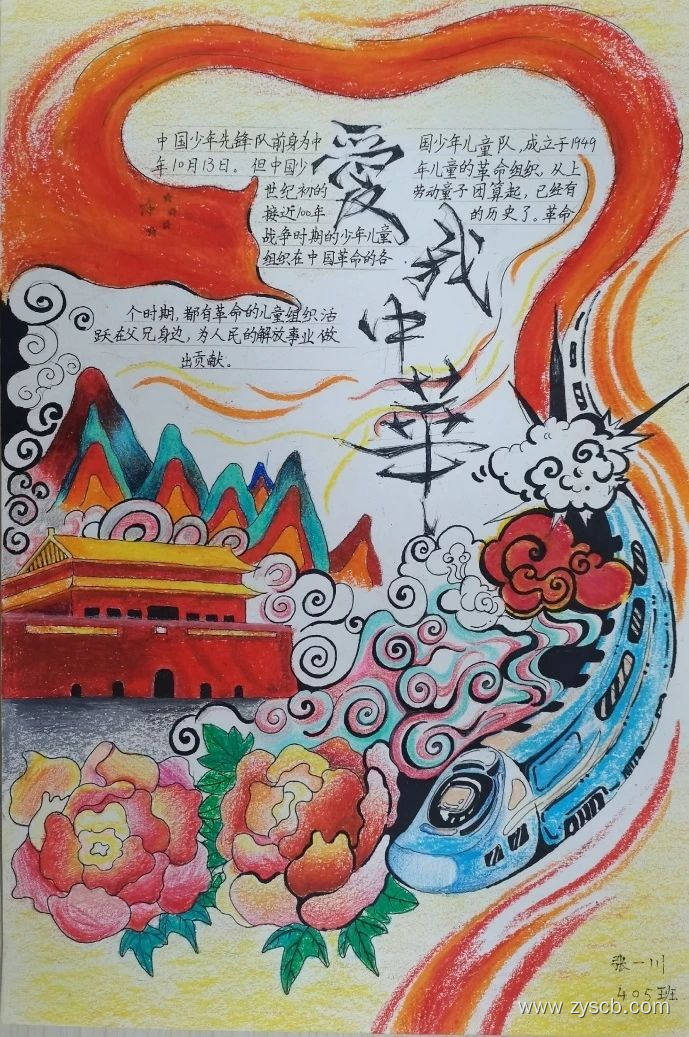 爱我中華
中国少年先锋队前身为中国少年儿童队,成立于1949
年10月13日。但中国少年儿童的革命组织,从上
世纪初的劳动童子团算起,已经有
接近100年的历史了。革命
战争时期的少年儿童
组织在中国革命的各
个时期,都有革命的儿童组织活
跃在父兄身边,为人民的解放事业做
出贡献。
张一川
405班
www.zyscb.com